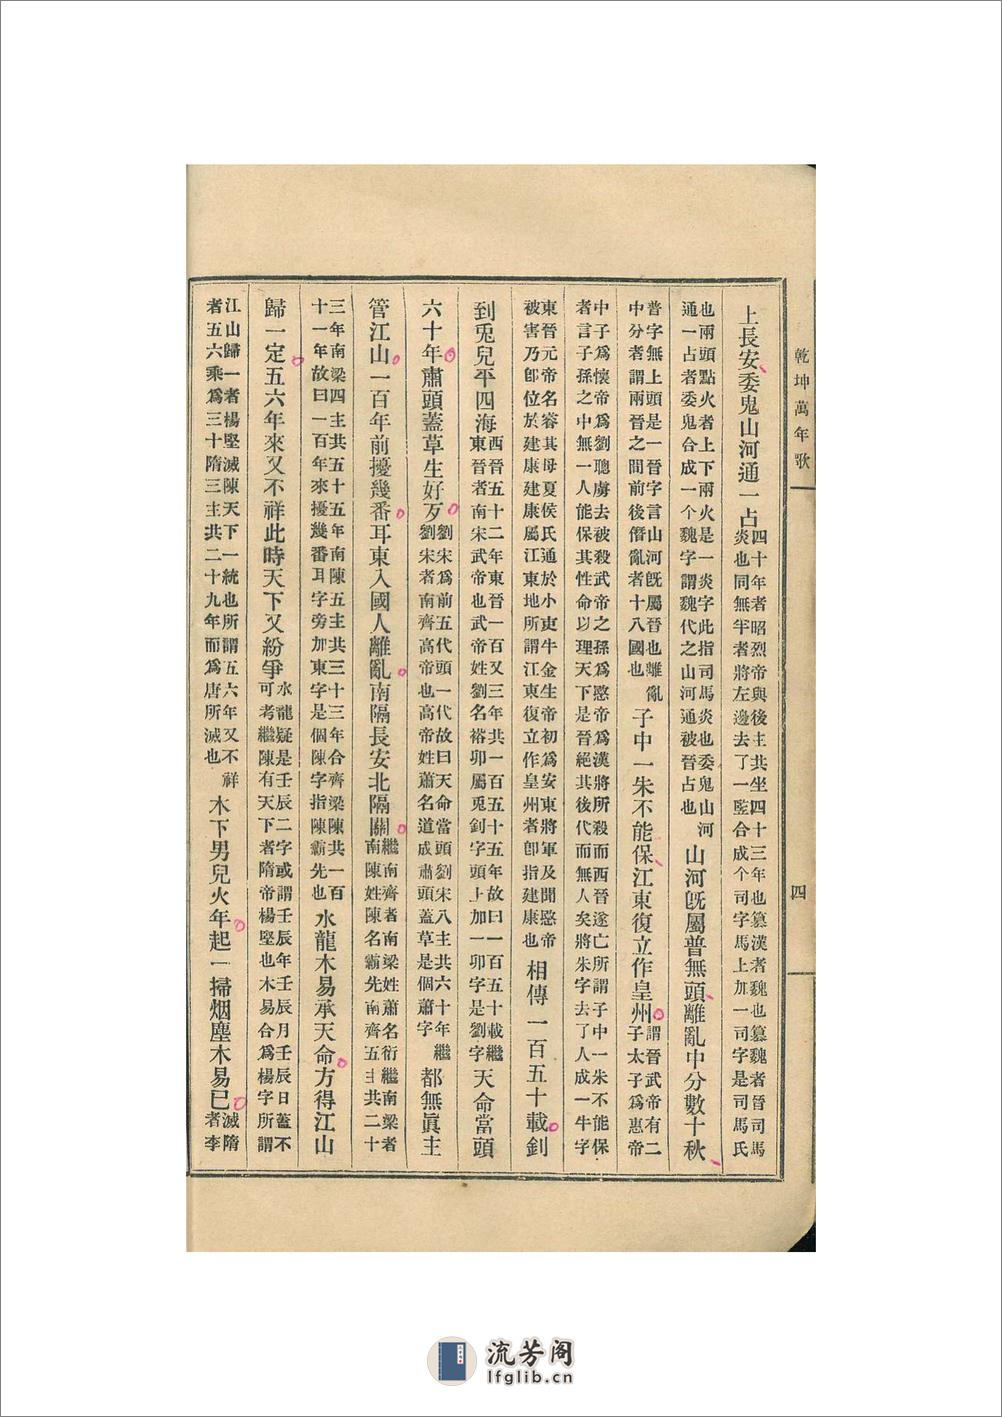 乾坤萬年歌
四
上長安委鬼山河通一占
四十年者昭烈帝與後主共坐四十三年也篡漢者魏也篡魏者晉司馬
炎也同無半者將左邊去了一竪合成个司字馬上加一司字是司馬氏
也兩頭點火者上下兩火是一炎字此指司馬炎也委鬼山河
通一占者委鬼合成一个魏字謂魏代之山河通被晉占也
山河旣屬普無頭離亂中分數十秋
普字無上頭是一晉字言山河旣屬晉也離亂
中分者謂兩晉之間前後僭亂者十八國也
子中一朱不能保江東復立作皇州
謂晉武帝有二
子太子爲惠帝
中子爲懷帝爲劉聰虜去被殺武帝之孫爲愍帝爲漢將所殺而西晉遂亡所謂子中一朱不能保
者言子孫之中無一人能保其性命以理天下是晉絕其後代而無人矣將朱字去了人成一牛字
東晉元帝名睿其母夏侯氏通於小吏牛金生帝初爲安東將軍及聞愍帝
被害乃卽位於建康建康屬江東地所謂江東復立作皇州者卽指建康也
相傳一百五十載釗
到兎兒平四海
西晉五十二年東晉一百又三年共一百五十五年故曰一百五十載繼
東晉者南宋武帝也武帝姓劉名裕卯屬兎釗字頭上加一卯字是劉字
天命當頭
六十年肅頭蓋草生好歹
劉宋爲前五代頭一代故曰天命當頭劉宋八主共六十年繼
劉宋者南齊高帝也高帝姓蕭名道成肅頭蓋草是個蕭字
都無眞主
管江山一百年前擾幾番耳東入國人離亂南隔長安北隔關
繼南齊者南梁姓蕭名衍繼南梁者
南陳姓陳名霸先南齊五主共二十
三年南梁四主共五十五年南陳五主共三十三年合齊梁陳共一百
十一年故曰一百年來擾幾番耳字旁加東字是個陳字指陳霸先也
水龍木易承天命方得江山
歸一定五六年來又不祥此時天下又紛爭
水龍疑是壬辰二字或謂壬辰年壬辰月壬辰日蓋不
可考繼陳有天下者隋帝楊堅也木易合爲楊字所謂
江山歸一者楊堅滅陳天下一統也所謂五六年又不祥
者五六乘爲三十隋三主共二十九年而爲唐所滅也
木下男兒火年起一掃烟塵木易已
滅隋
者李
流芳阁
lfglib.cn